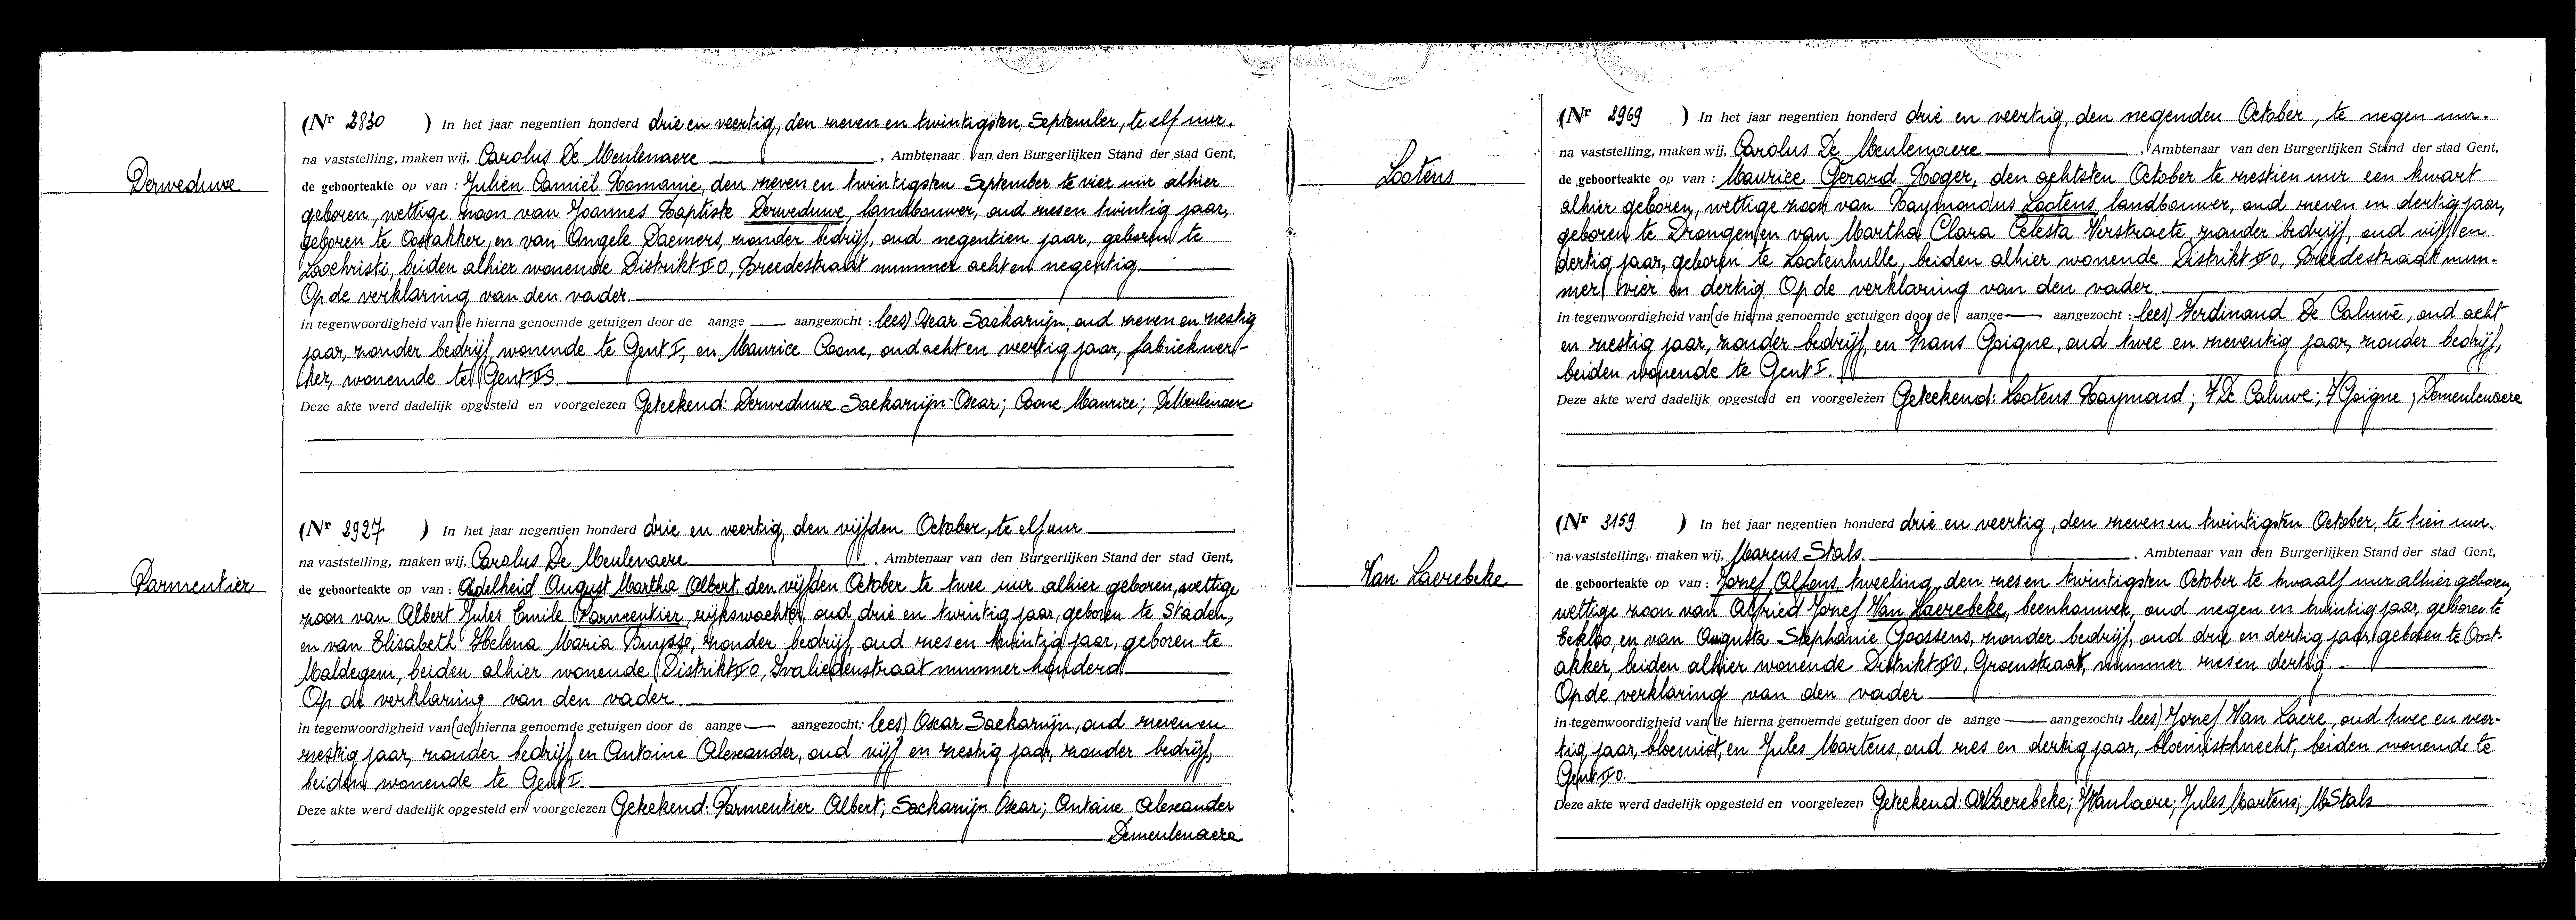 Derweduwe
(Nr 2830 ) In het jaar negentien honderd drie en veertig, den zeven en twintigsten September, te elf uur.
na vaststelling, maken wij, Carolus De Meulenaere , Ambtenaar van den Burgerlijken Stand der stad Gent,
de geboorteakte op van : Julien Camiel Romanie, den zeven en twintigsten September te vier uur alhier
geboren, wettige zoon van Joannes Baptiste Derweduwe, landbouwer, oud zesen twintig jaar,
geboren te Oostakker, en van Angele Daemers, zonder bedrijf, oud negentien jaar, geboren te
Loochristi, beiden alhier wonende Distrikt II O, Breedestraat nummer achten negentig.
Op de verklaring van den vader.
in tegenwoordigheid van (de hierna genoemde getuigen door de aange — aangezocht : lees) Oscar Saekarnijn, oud zeven en zestig
jaar, zonder bedrijf, wonende te Gent I, en Maurice Coone, oud acht en veertig jaar, fabriekwer-
ker, wonende te Gent
Deze akte werd dadelijk opgesteld en voorgelezen Geteekend: Derweduwe Saekarnijn Oscar; Coone Maurice; DeMeulenaere
Parmentier
(Nr 2927 ) In het jaar negentien honderd drie en veertig, den vijfden October, te elf uur
na vaststelling, maken wij, Carolus De Meulenaere . Ambtenaar van den Burgerlijken Stand der stad Gent,
de geboorteakte op van : Adelheid August Martha Albert, den vijfden October te twee uur alhier geboren, wettige
zoon van Albert Jules Emile Parmentier, rijkswachter, oud drie en twintig jaar, geboren te Staden,
en van Elisabeth Helena Maria Buysse, zonder bedrijf, oud zesen twintig jaar, geboren te
Maldegem, beiden alhier wonende Distrikt II O, Invaliedenstraat nummer honderd
Op de verklaring van den vader.
in tegenwoordigheid van (de hierna genoemde getuigen door de aange — aangezocht; lees) Oscar Saekarnijn, oud zeven en
zestig jaar, zonder bedrijf, en Antoine Alexander, oud vijf en zestig jaar, zonder bedrijf,
beiden wonende te Gent I.
Deze akte werd dadelijk opgesteld en voorgelezen Geteekend: Parmentier Albert; Saekarnijn Oscar; Antoine Alexander
Demeulenaere
Lootens
(Nr 2969 ) In het jaar negentien honderd drie en veertig, den negenden October, te negen uur.
na vaststelling, maken wij, Carolus De Meulenaere , Ambtenaar van den Burgerlijken Stand der stad Gent,
de geboorteakte op van : Maurice Gerard Roger, den achtsten October te zestien uur een kwart
alhier geboren, wettige zoon van Raymondus Lootens, landbouwer, oud zeven en dertig jaar,
geboren te Drongen en van Martha Clara Celesta Verstraete, zonder bedrijf, oud vijf en
dertig jaar, geboren te Lootenhulle, beiden alhier wonende Distrikt II O, Breedestraat num-
mer vier en dertig. Op de verklaring van den vader
in tegenwoordigheid van (de hierna genoemde getuigen door de aange — aangezocht : lees) Ferdinand De Caluwé, oud acht
en zestig jaar, zonder bedrijf, en Frans Goigne, oud twee en zeventig jaar, zonder bedrijf,
beiden wonende te Gent I.
Deze akte werd dadelijk opgesteld en voorgelezen Geteekend: Lootens Raymond; F De Caluwe; F Goigne; Demeulenaere
Van Laerebeke
(Nr 3159 ) In het jaar negentien honderd drie en veertig, den zeven en twintigsten October, te tien uur.
na vaststelling, maken wij, Marcus Stals. . Ambtenaar van den Burgerlijken Stand der stad Gent,
de geboorteakte op van : Jozef Alfons, tweeling, den zesen twintigsten October te twaalf uur alhier geboren,
wettige zoon van Alfried Jozef Van Laerebeke, beenhouwer, oud negen en twintig jaar, geboren te
Eekloo, en van Augusta Stephanie Goossens, zonder bedrijf, oud drie en dertig jaar, geboren te Oost-
akker, beiden alhier wonende Distrikt II O, Groenstraat, nummer zesen dertig.
Op de verklaring van den vader
in tegenwoordigheid van (de hierna genoemde getuigen door de aange — aangezocht; lees) Jozef Van Laere, oud twee en veer-
tig, jaar, bloemist, en Jules Martens, oud zes en dertig jaar, bloemistknecht, beiden wonende te
Gent II O.
Deze akte werd dadelijk opgesteld en voorgelezen Geteekend: AVLaerebeke; JVanlaere; Jules Martens; MStals